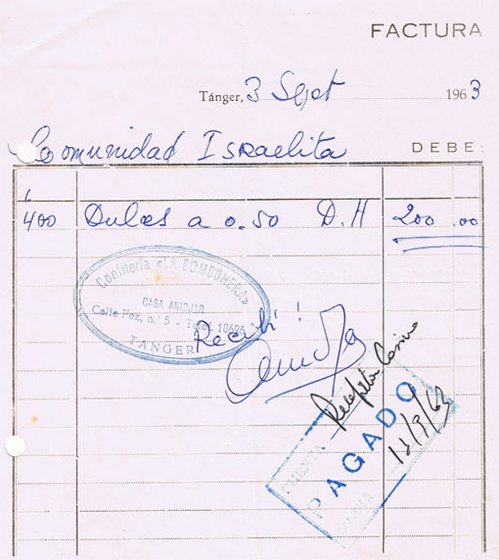 FACTURA
Tánger, 3 Sept 1963
Comunidad Israelita DEBE:
400 Dulces a 0.50 D.H 200.00
Confitería «LA BOMBONERA»
CASA ANIDJAR
Calle Fez, n.° 5 - Teléf. 10695
TANGER
Recibí!
Recepción Casino
PAGADO
13/9/63
TANGER